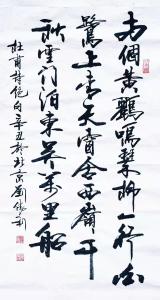 两個黃鸝鳴翠柳一行白
鷺上青天窗含西嶺千
秋雪門泊東吳萬里船
杜甫詩絕句辛丑於北京劉